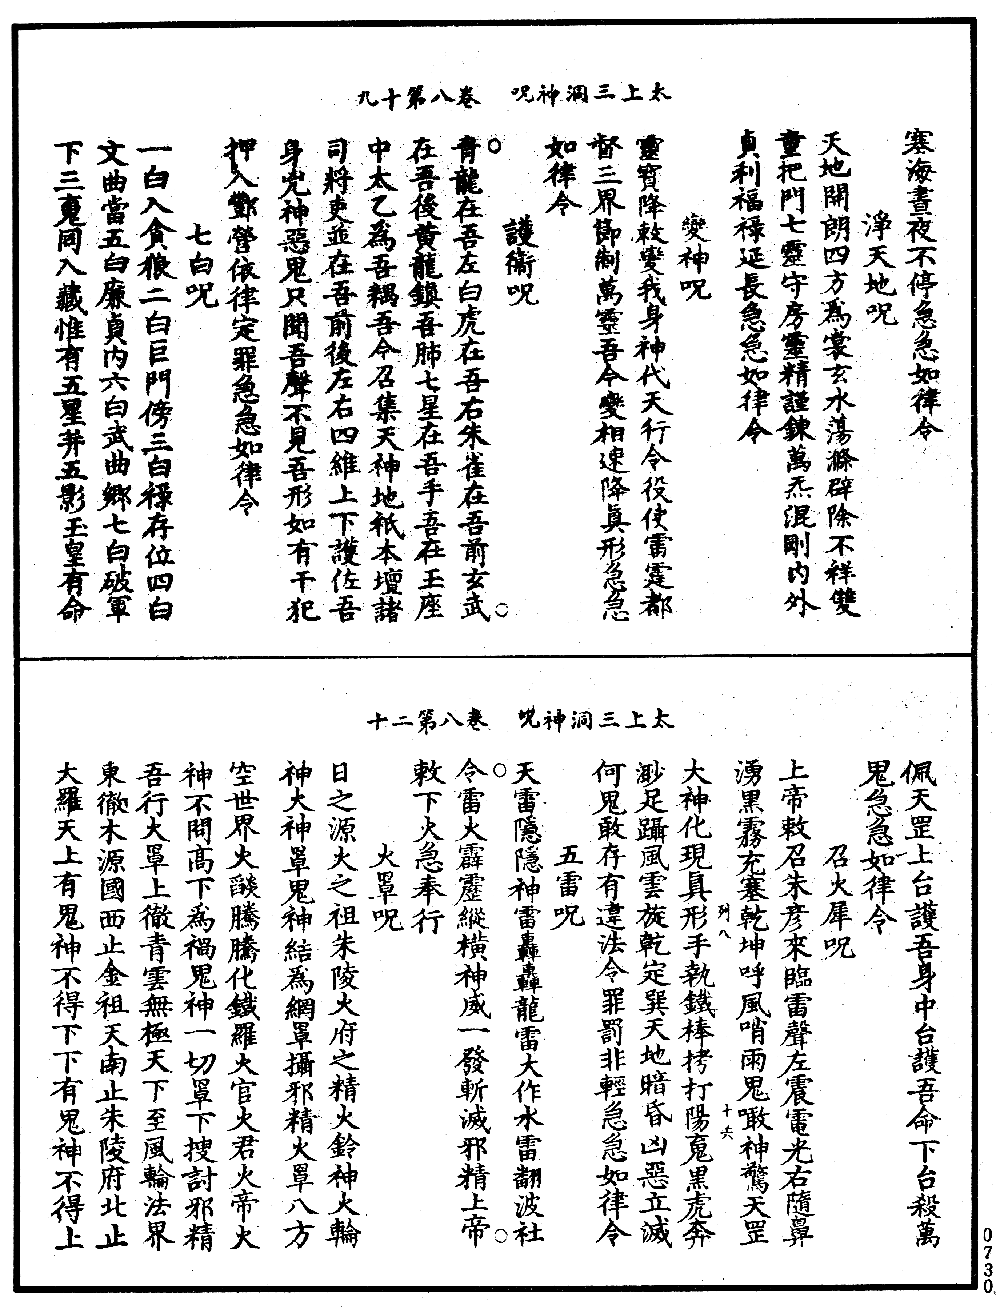 太上三洞神呪　卷八第十九
塞海晝夜不停急急如律令
淨天地呪
天地開朗四方為裳玄水蕩滌辟除不祥雙
童把門七靈守房靈精謹鍊萬炁混剛內外
貞利福祿延長急急如律令
變神呪
靈寶降敕變我身神代天行令役使雷霆都
督三界節制萬靈吾今變相速降真形急急
如律令
護衛呪
青龍在吾左白虎在吾右朱雀在吾前玄武
在吾後黃龍鎮吾肺七星在吾手吾在玉座
中太乙為吾耦吾今召集天神地祇本壇諸
司將吏並在吾前後左右四維上下護佐吾
身兇神惡鬼只聞吾聲不見吾形如有干犯
押入酆營依律定罪急急如律令
七白呪
一白入貪狼二白巨門傍三白祿存位四白
文曲當五白廉貞內六白武曲鄉七白破軍
下三䰟同入藏惟有五星并五影玉皇有命
太上三洞神呪　卷八第二十
佩天罡上台護吾身中台護吾命下台殺萬
鬼急急如律令
召火犀呪
上帝敕召朱彥來臨雷聲左震電光右隨鼻
湧黑霧充塞乾坤呼風哨雨鬼噉神驚天罡
列八
十六
大神化現真形手執鐵棒拷打陽䰟黑虎奔
渺足躡風雲旋乾定巽天地暗昏凶惡立滅
何鬼敢存有違法令罪罰非輕急急如律令
五雷呪
天雷隱隱神雷轟轟龍雷大作水雷翻波社
令雷火霹靂縱橫神威一發斬滅邪精上帝
敕下火急奉行
火罩呪
日之源火之祖朱陵火府之精火鈴神火輪
神大神罩鬼神結為網罩攝邪精火罩八方
空世界火燄騰騰化鐵羅火官火君火帝火
神不問高下為禍鬼神一切罩下搜討邪精
吾行大罩上徹青雲無極天下至風輪法界
東徹木源國西止金祖天南止朱陵府北止
大羅天上有鬼神不得下下有鬼神不得上
0730